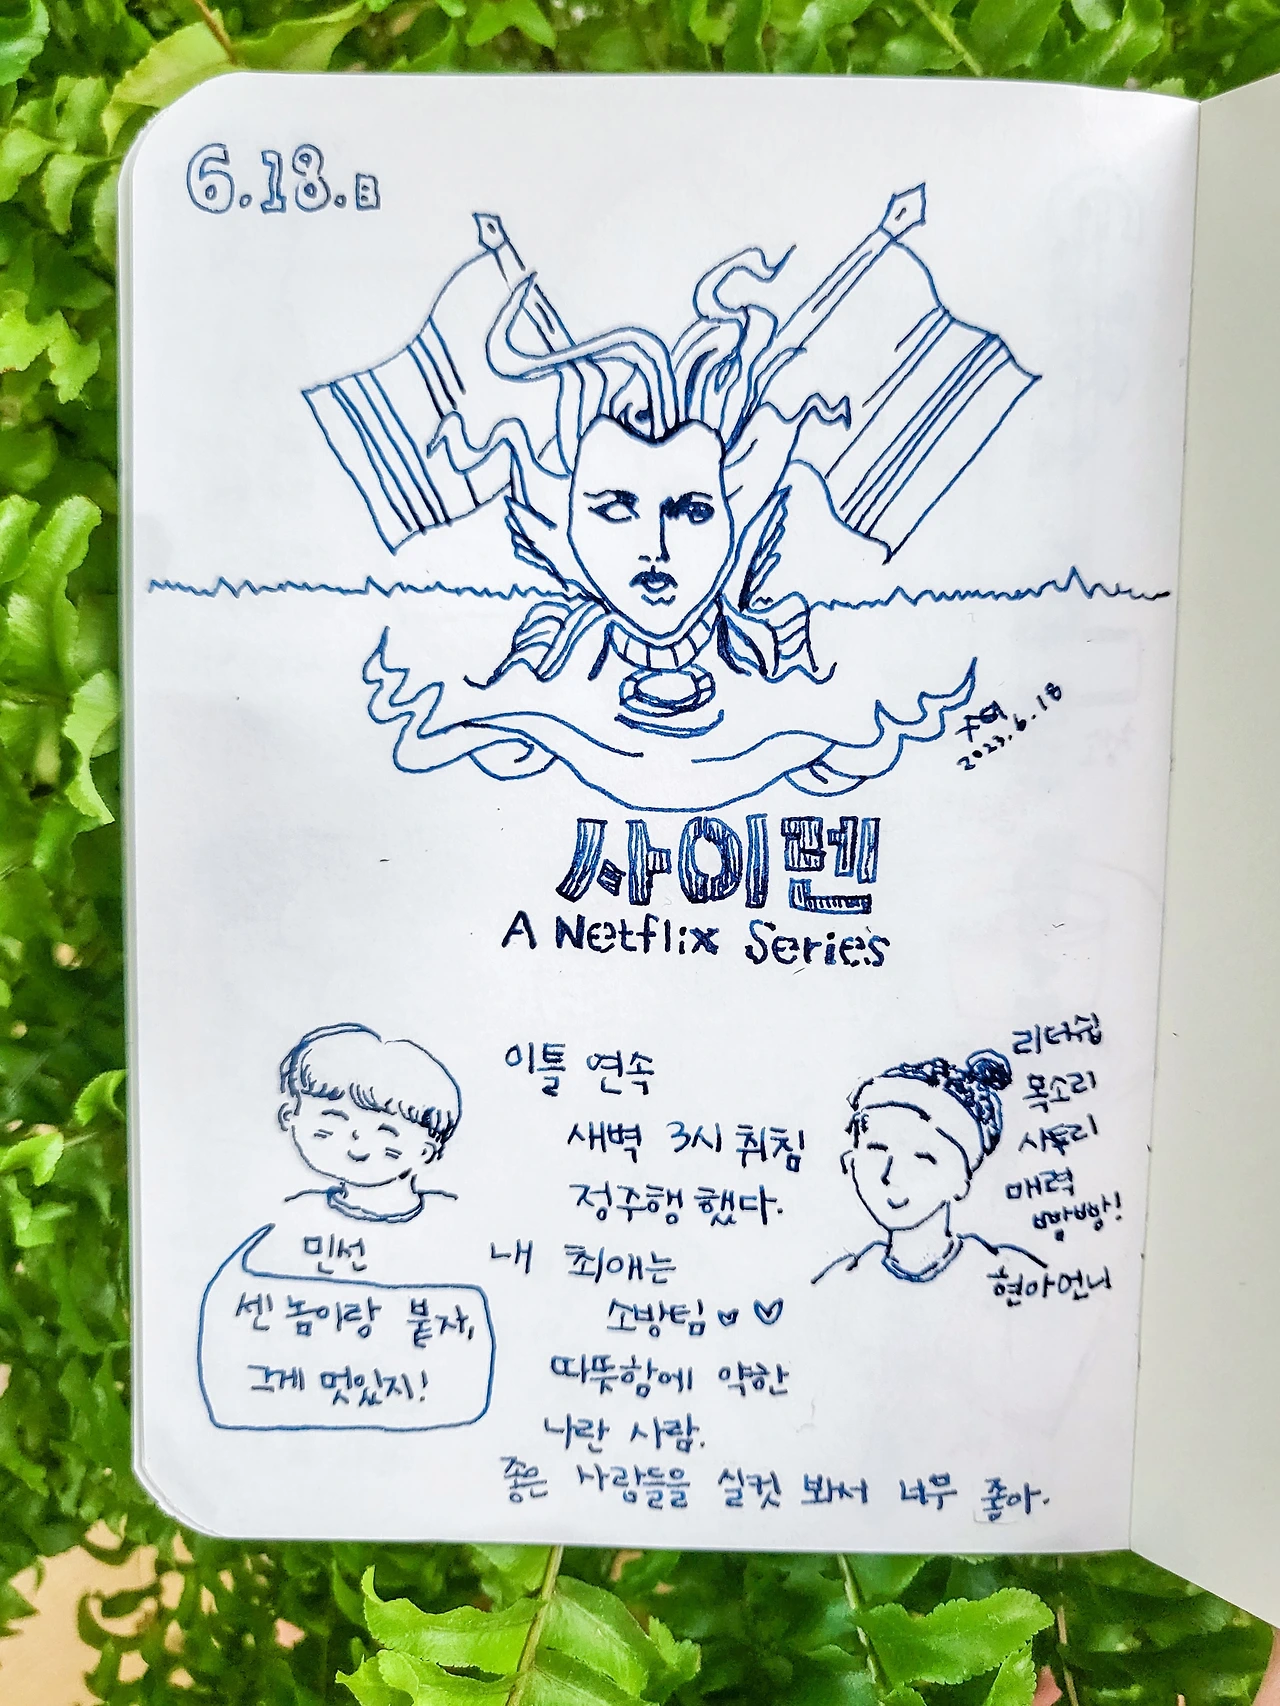 6.18.日
2023.6.18
사이렌
A Netflix Series
이틀 연속
새벽 3시 취침
정주행 했다.
내 최애는
소방팀
따뜻함에 약한
나란 사람.
좋은 사람들을 실컷 봐서 너무 좋아.
민선
센 놈이랑 붙자,
그게 멋있지!
리더쉽
목소리
사투리
매력
빵빵!
현아언니